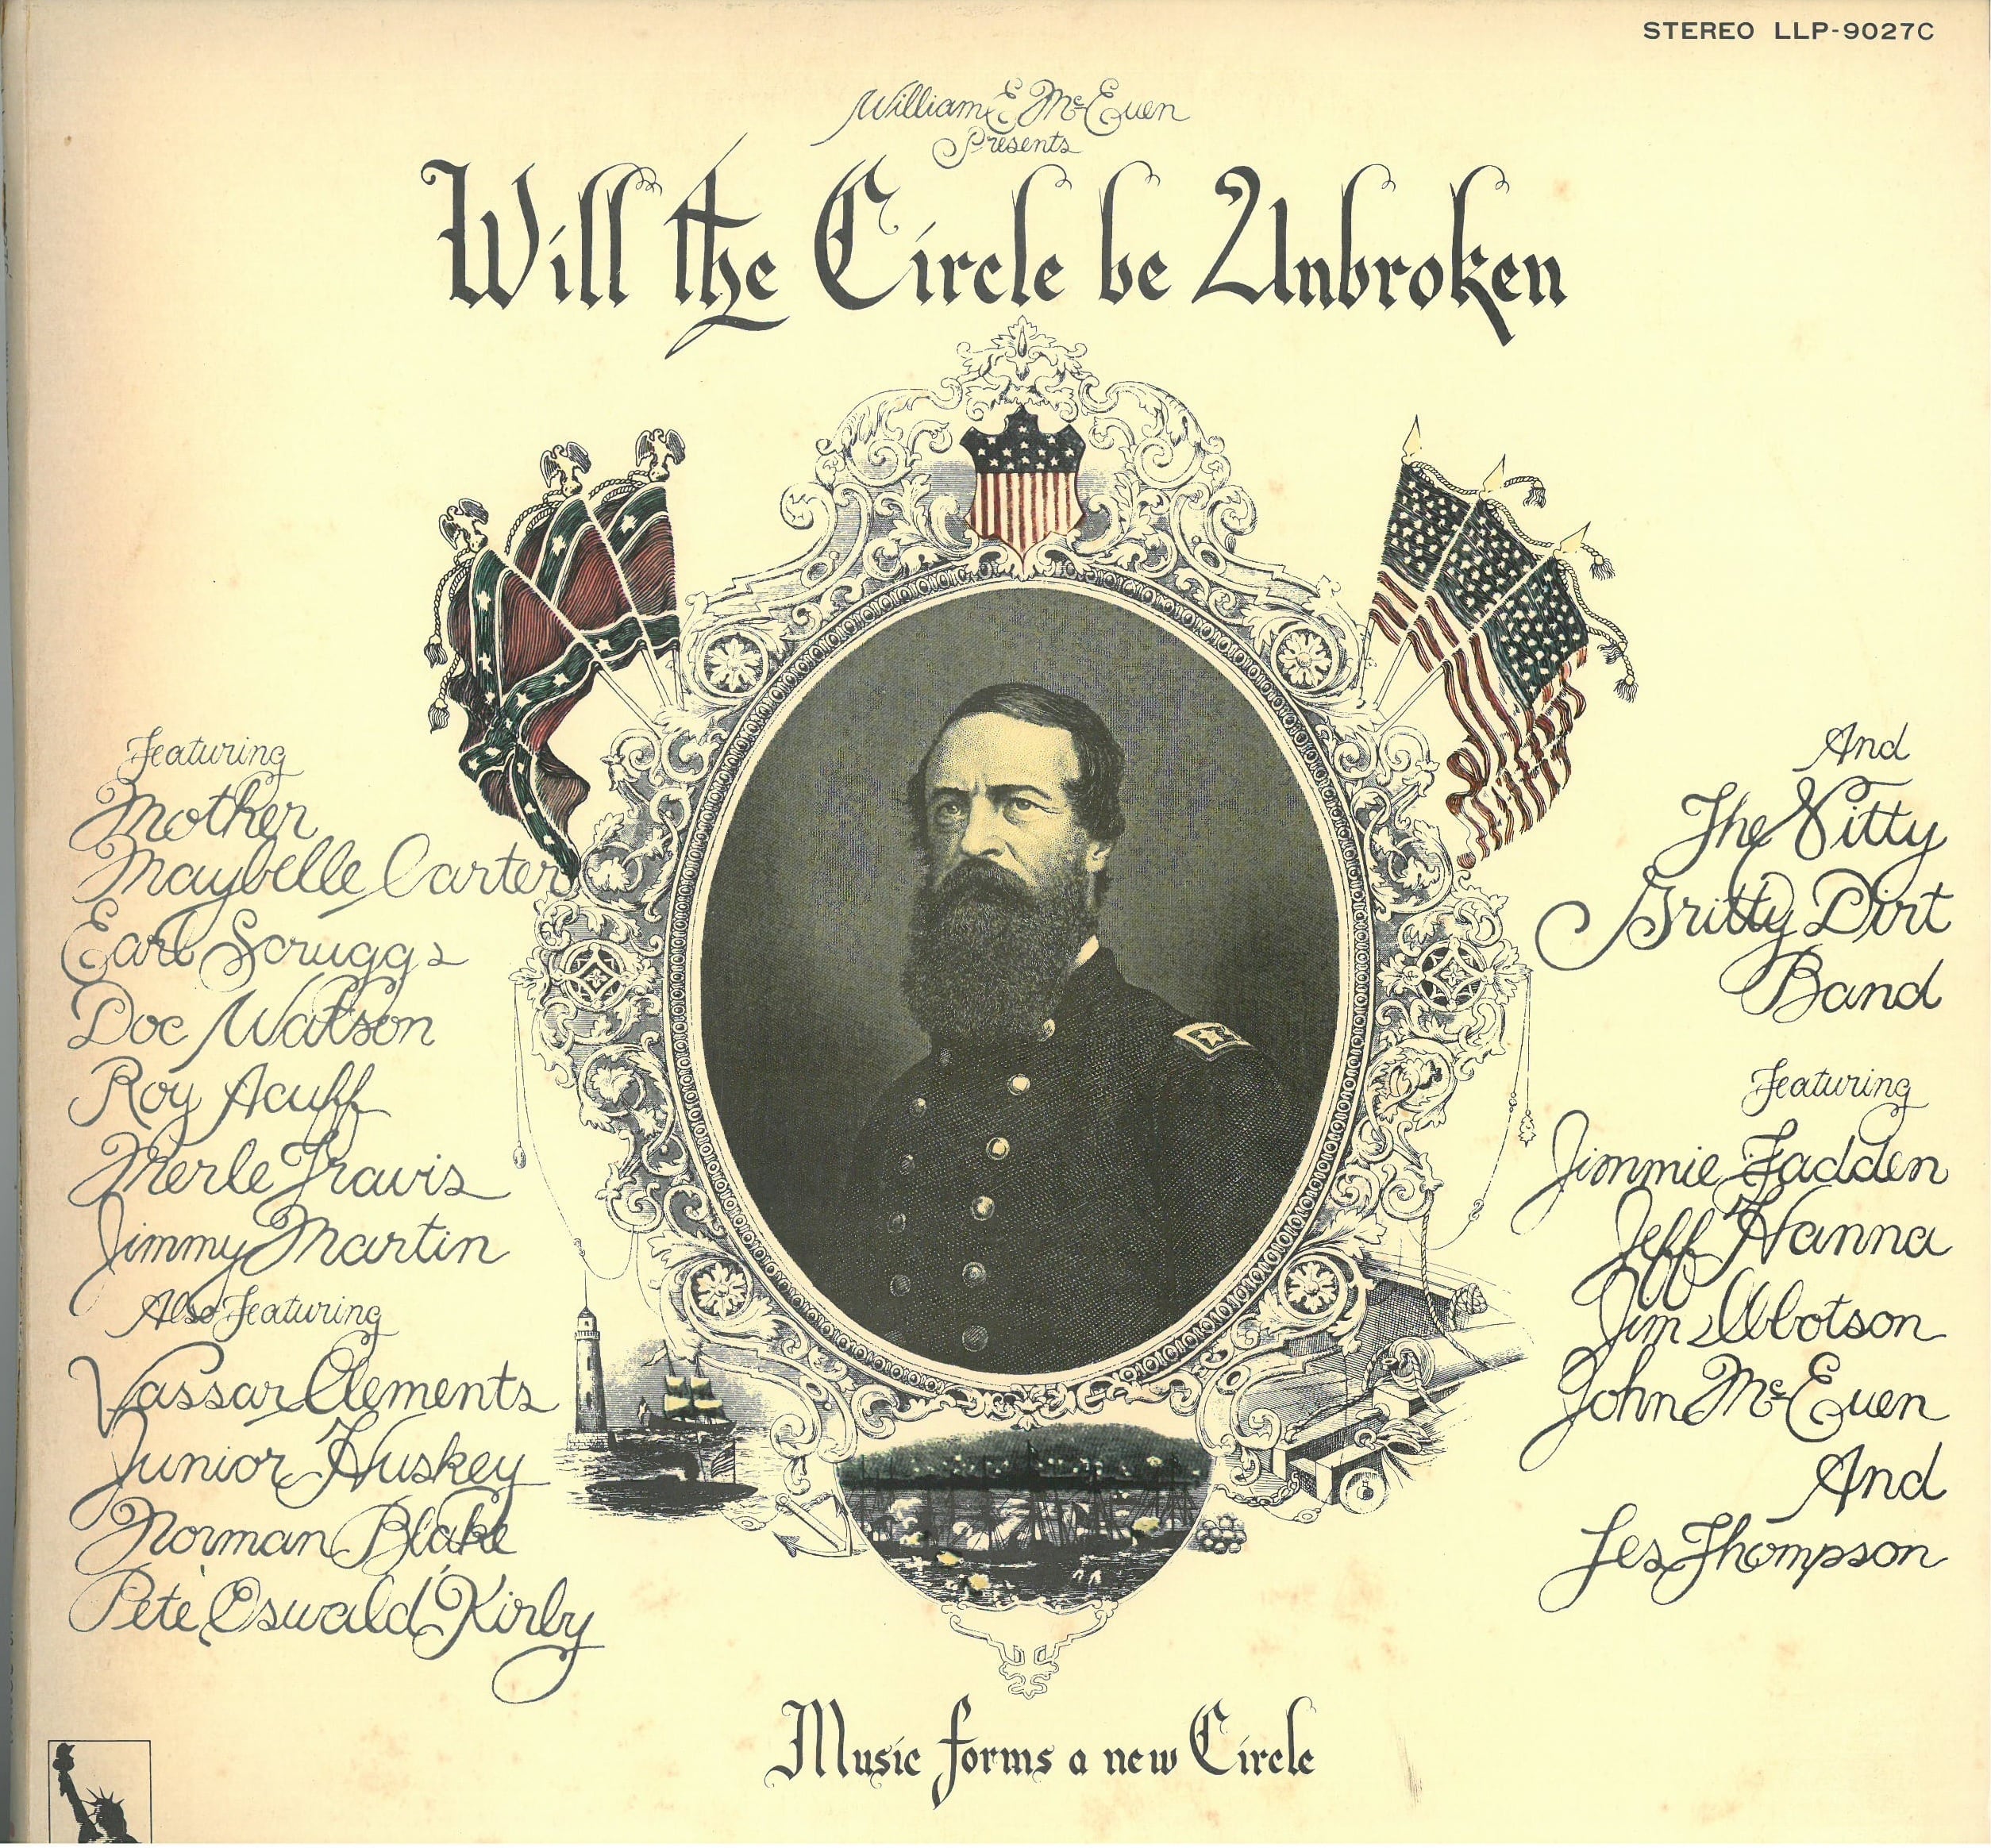 STEREO LLP-9027C
William E McEuen
Presents
Will the Circle be Unbroken
Featuring
Mother
Maybelle Carter
Earl Scruggs
Doc Watson
Roy Acuff
Merle Travis
Jimmy Martin
Also Featuring
Vassar Clements
Junior Huskey
Norman Blake
Pete 'Oswald' Kirby
And
The Nitty
Gritty Dirt
Band
Featuring
Jimmie Fadden
Jeff Hanna
Jim Ibbotson
John McEuen
And
Les Thompson
Music forms a new Circle